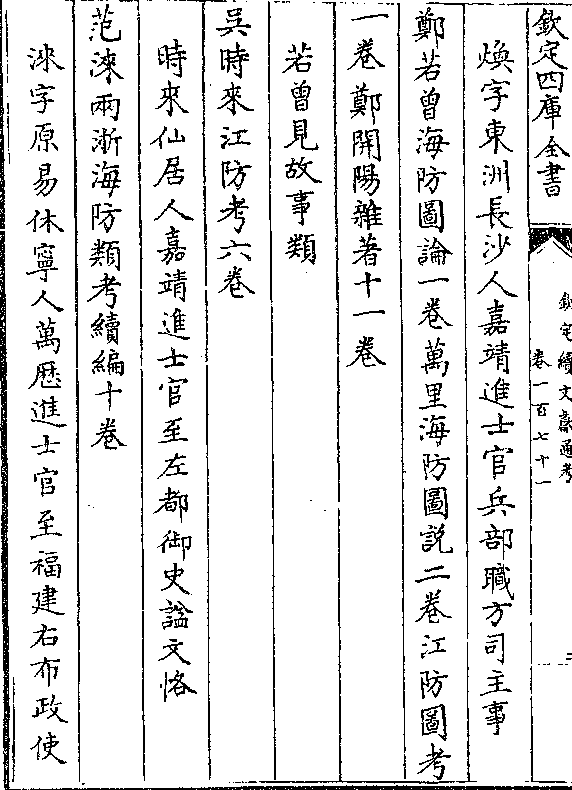 欽定四庫全書
欽定續文獻通考
卷一百七十一
煥字東洲長沙人嘉靖進士官兵部職方司主事
鄭若曾海防圖論一卷萬里海防圖説二卷江防圖考
一卷鄭開陽雜著十一卷
若曾見故事類
吳時來江防考六卷
時來仙居人嘉靖進士官至左都御史諡文恪
范淶兩浙海防類考續編十卷
淶字原易休寧人萬歴進士官至福建右布政使